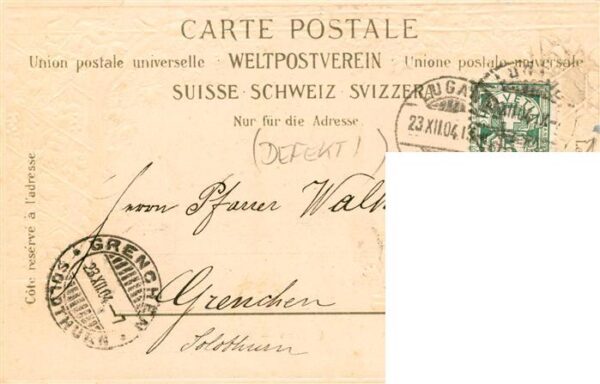 CARTE POSTALE
Union postale universelle · WELTPOSTVEREIN · Unione postale universale
SUISSE · SCHWEIZ · SVIZZERA
Nur für die Adresse
(DEFEKT!)
23.XII.04
Côte reservé à l'adresse
Herrn Pfarrer
Grenchen
Solothurn
GRENCHEN
23.XII.04–7
(SOLOTHURN)